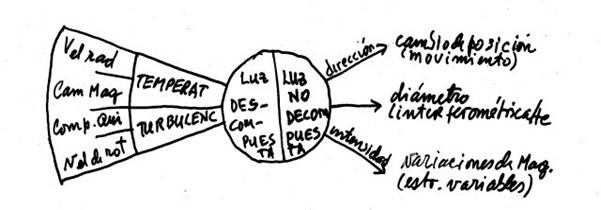 Vel rad
Cam Mag
Comp. Qui
Vel de rot
TEMPERAT
TURBULENC
LUZ
DES-
COM-
PUES
TA
LUZ
NO
DECOM
PUES
TA
dirección
cambio de posición
(movimiento)
diámetro
(interferométricañte
intensidad
variaciones de Mag.
(estr. variables)